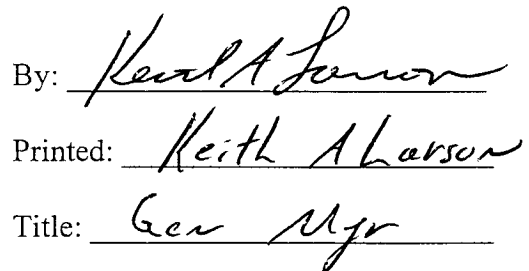 By: Keith A Larson
Printed: Keith A Larson
Title: Gen Mgr